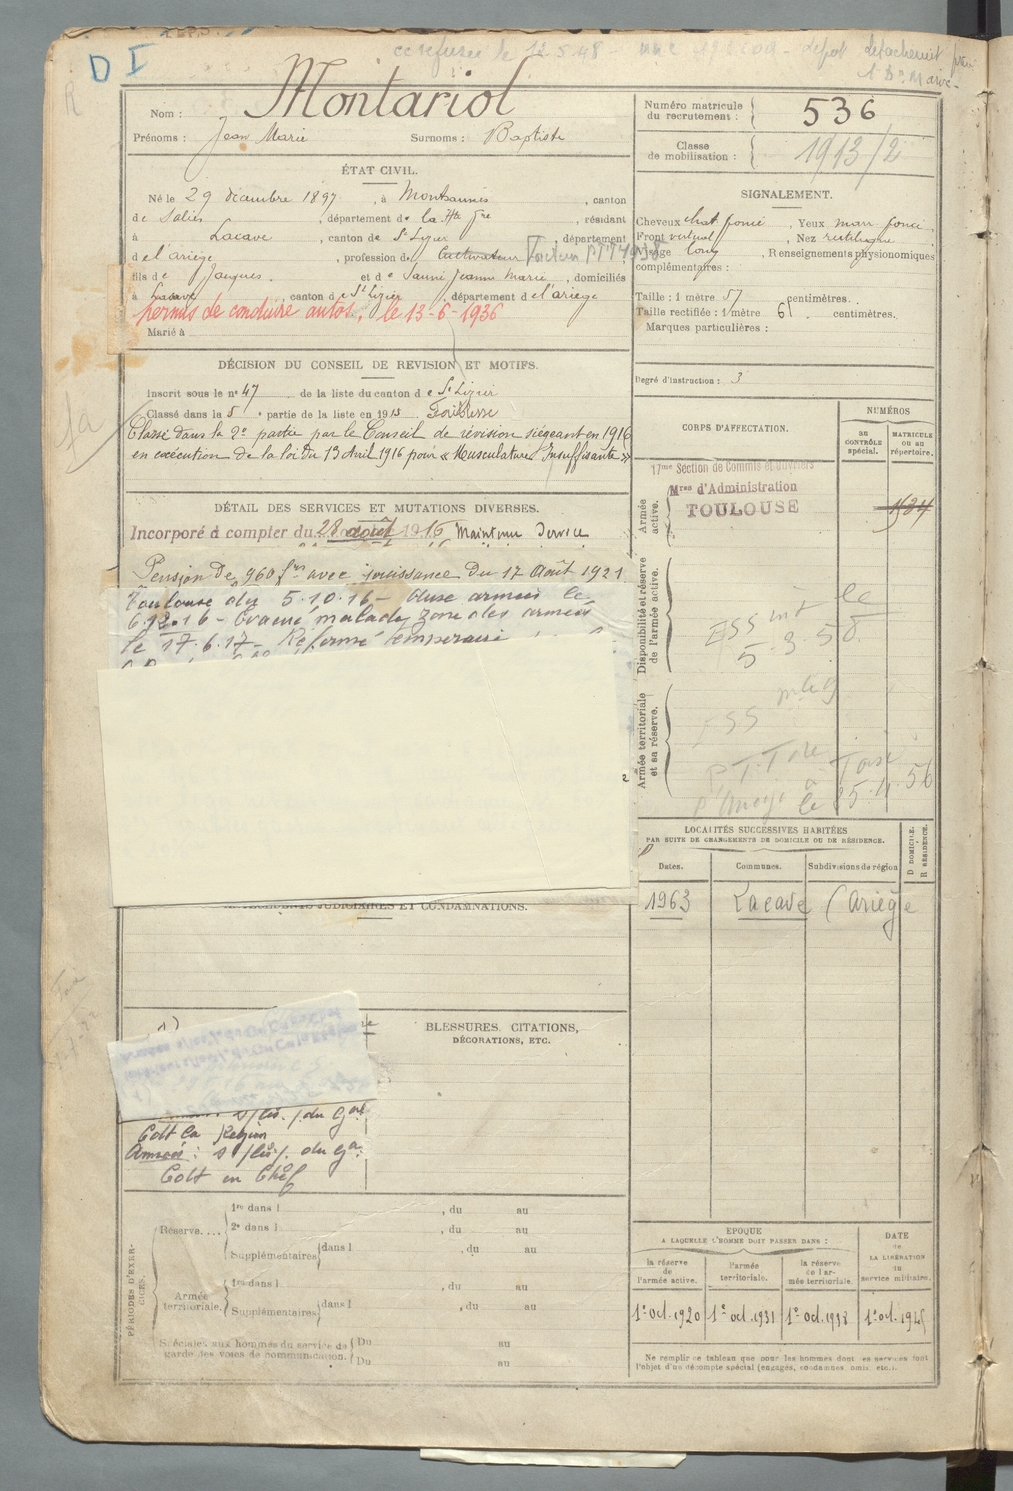 D I
ce refusée le 12.5.48
Nom : Montariol
Numéro matricule du recrutement : 536
Prénoms : Jean Marie Surnoms : Baptiste
Classe de mobilisation : 1913/2
ÉTAT CIVIL.
Né le 29 décembre 1897, à Montsaunès, canton
de Salies, département de la Hte Gne, résidant
à Lacave, canton de St Lizier, département
de l'ariège, profession de Cultivateur Facteur PTT 1938
fils de Jacques et de Saune Jeanne Marie, domiciliés
à Lacave, canton de St Lizier, département de l'ariège
permis de conduire autos, le 13-6-1936
Marié à
SIGNALEMENT.
Cheveux chat. foncé, Yeux marr. foncé
Front vertical, Nez rectiligne
Visage long, Renseignements physionomiques
complémentaires :
Taille : 1 mètre 57 centimètres.
Taille rectifiée : 1 mètre 61 centimètres.
Marques particulières :
Degré d'instruction : 3
DÉCISION DU CONSEIL DE REVISION ET MOTIFS.
Inscrit sous le no 47 de la liste du canton de St Lizier
Classé dans la 5e partie de la liste en 1915 Faiblesse
Classé dans la 2e partie par le Conseil de révision siégeant en 1916
en exécution de la loi du 13 Avril 1916 pour « Musculature Insuffisante »
DÉTAIL DES SERVICES ET MUTATIONS DIVERSES.
Incorporé à compter du 28 août 1916 Maintenu Service
Pension de 960 frs avec jouissance du 17 Août 1921
Toulouse du 5.10.16 - Aux armées le
6.12.16 - Évacué malade zone des armées
le 17.6.17 - Réformé temporaire
CORPS D'AFFECTATION.
NUMÉROS
AU CONTRÔLE spécial.
MATRICULE OU AU répertoire.
Armée active.
17me Section de Commis et Ouvriers
Mres d'Administration
TOULOUSE
Disponibilité et réserve de l'armée active.
5.3 58
Armée territoriale et sa réserve.
LOCALITÉS SUCCESSIVES HABITÉES
PAR SUITE DE CHANGEMENTS DE DOMICILE OU DE RÉSIDENCE.
Dates.
Communes.
Subdivisions de région
D DOMICILE.
R RÉSIDENCE.
1963 Lacave (Ariège
JUDICIAIRES ET CONDAMNATIONS.
BLESSURES, CITATIONS,
DÉCORATIONS, ETC.
du Gal
Cdt la Région
Armées : du Gal
Cdt en Chef
PÉRIODES D'EXERCICES.
Réserve....
1re dans l , du au
2e dans l , du au
Supplémentaires dans l , du au
Armée territoriale.
1re dans l , du au
Supplémentaires dans l , du au
Spéciales aux hommes du service de garde des voies de communication.
Du au
Du au
EPOQUE
A LAQUELLE L'HOMME DOIT PASSER DANS :
la réserve de l'armée active.
l'armée territoriale.
la réserve de l'armée territoriale.
DATE
de
LA LIBÉRATION
du
service militaire.
1e oct. 1920
1e oct. 1931
1e oct. 1938
1e oct. 1945
Ne remplir ce tableau que pour les hommes dont les services font
l'objet d'un décompte spécial (engagés, condamnés, omis, etc.).